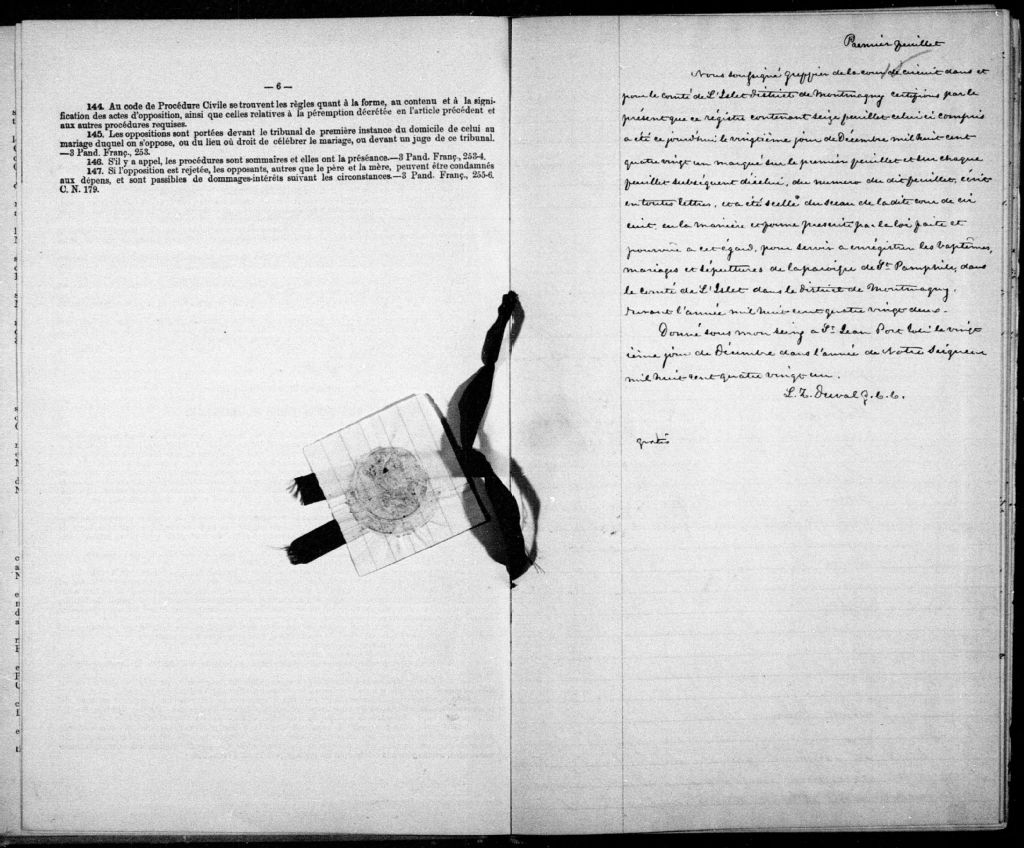 — 6 —
144. Au code de Procédure Civile se trouvent les règles quant à la forme, au contenu et à la signi-
fication des actes d'opposition, ainsi que celles relatives à la péremption décrétée en l'article précédent et
aux autres procédures requises.
145. Les oppositions sont portées devant le tribunal de première instance du domicile de celui au
mariage duquel on s'oppose, ou du lieu où droit de célébrer le mariage, ou devant un juge de ce tribunal.
—3 Pand. Franç., 253.
146. S'il y a appel, les procédures sont sommaires et elles ont la préséance.—3 Pand. Franç., 253-4.
147. Si l'opposition est rejetée, les opposants, autres que le père et la mère, peuvent être condamnés
aux dépens, et sont passibles de dommages-intérêts suivant les circonstances.—3 Pand. Franç., 255-6.
C. N. 179.
Premier feuillet
Nous soussigné greffier de la cour de circuit dans et
pour le comté de L'Islet district de Montmagny certifions par le
présent que ce régistre contenant seize feuillet celui ici compris
a été ce jourd'hui le vingtième jour de Décembre mil huit cent
quatre vingt un marqué sur le premier feuillet et sur chaque
feuillet subséquent d'icelui, du numero du dit feuillet, écrit
en toutes lettres, et a été scellé du sceau de la dite cour de cir
cuit, en la manière et forme prescrite par la loi faite et
pourvue a cet égard, pour servir a enrégistrer les baptêmes,
mariages et sépultures de la paroisse de St. Pamphile, dans
le Comté de L'Islet dans le district de Montmagny,
durant l'année mil huit cent quatre vingt deux.
Donné sous mon seing a St. Jean Port Joli le vingt
ième jour de Décembre dans l'année de Notre Seigneur
mil huit cent quatre vingt un.
L. Z. Duval G. C. C.
gratis